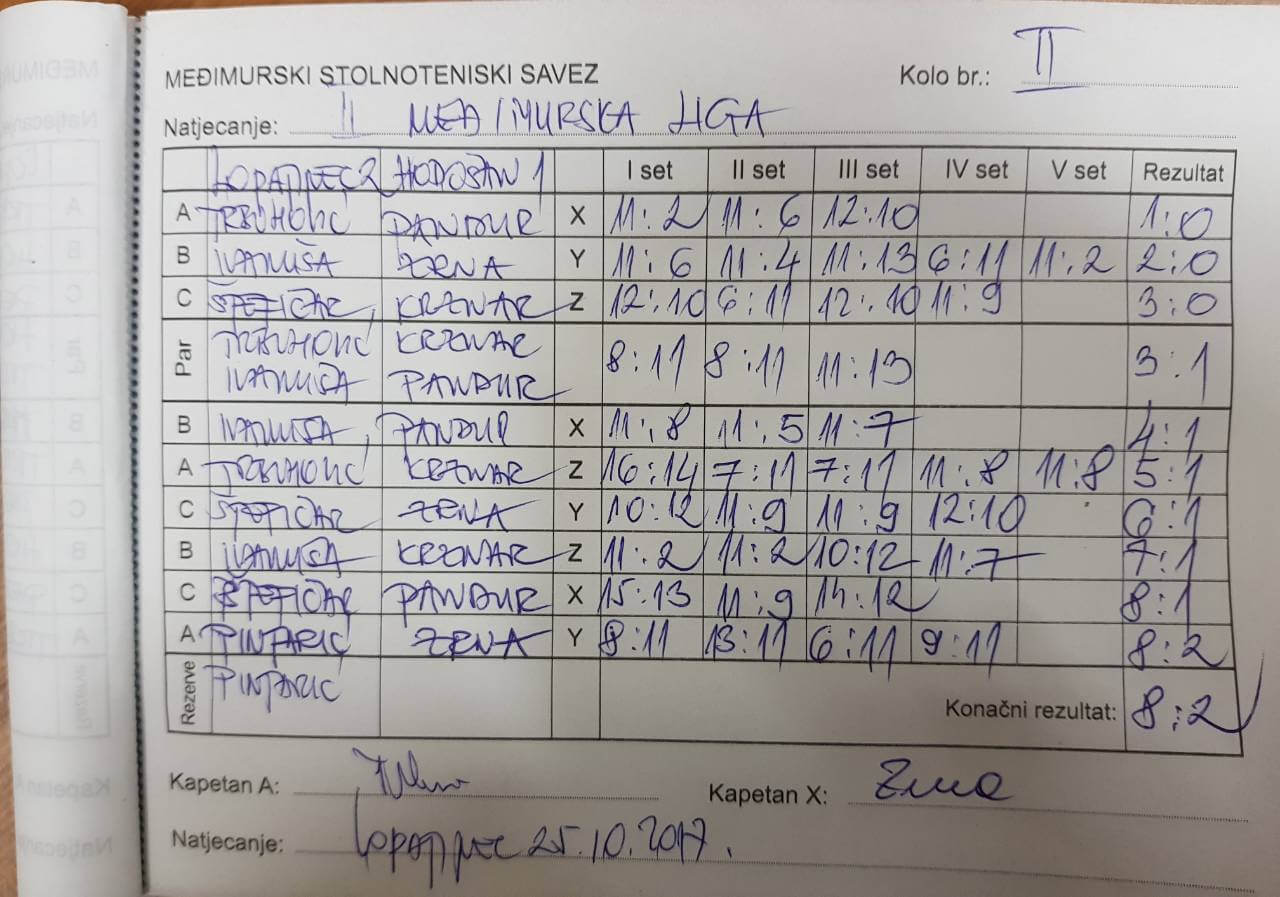 MEĐIMURSKI STOLNOTENISKI SAVEZ Kolo br.: II
Natjecanje: II MEĐIMURSKA LIGA
LOPATINEC 2 HODOŠAN 1 I set II set III set IV set V set Rezultat
A TRBUHOVIĆ PANDUR X 11:2 11:6 12:10 1:0
B IVANUŠA ZRNA Y 11:6 11:4 11:13 6:11 11:2 2:0
C ŠTEFIČAR KRZNAR Z 12:10 6:11 12:10 11:9 3:0
Par TRBUHOVIĆ KRZNAR 8:11 8:11 11:13 3:1
IVANUŠA PANDUR
B IVANUŠA PANDUR X 11:8 11:5 11:7 4:1
A TRBUHOVIĆ KRZNAR Z 16:14 7:11 7:11 11:8 11:8 5:1
C ŠTEFIČAR ZRNA Y 10:12 11:9 11:9 12:10 6:1
B IVANUŠA KRZNAR Z 11:2 11:2 10:12 11:7 7:1
C ŠTEFIČAR PANDUR X 15:13 11:9 14:12 8:1
A PINTARIĆ ZRNA Y 8:11 13:11 6:11 9:11 8:2
Rezerve PINTARIĆ
Konačni rezultat: 8:2
Kapetan A:
Kapetan X: Zrna
Natjecanje: Lopatinec 25.10.2017.